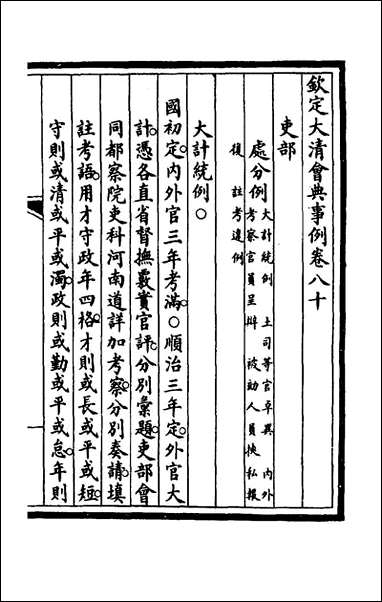 欽定大清會典事例卷八十
吏部
處分例
大計統例 土司等官卓異 內外
考察官員呈辯 被劾人員挾私報
復 註考違例
大計統例○
國初定內外官三年考滿○順治三年定外官大
計憑各直省督撫覈實官評分別彙題吏部會
同都察院吏科河南道詳加考察分別奏請填
註考語用才守政年四格才則或長或平或短
守則或清或平或濁政則或勤或平或怠年則